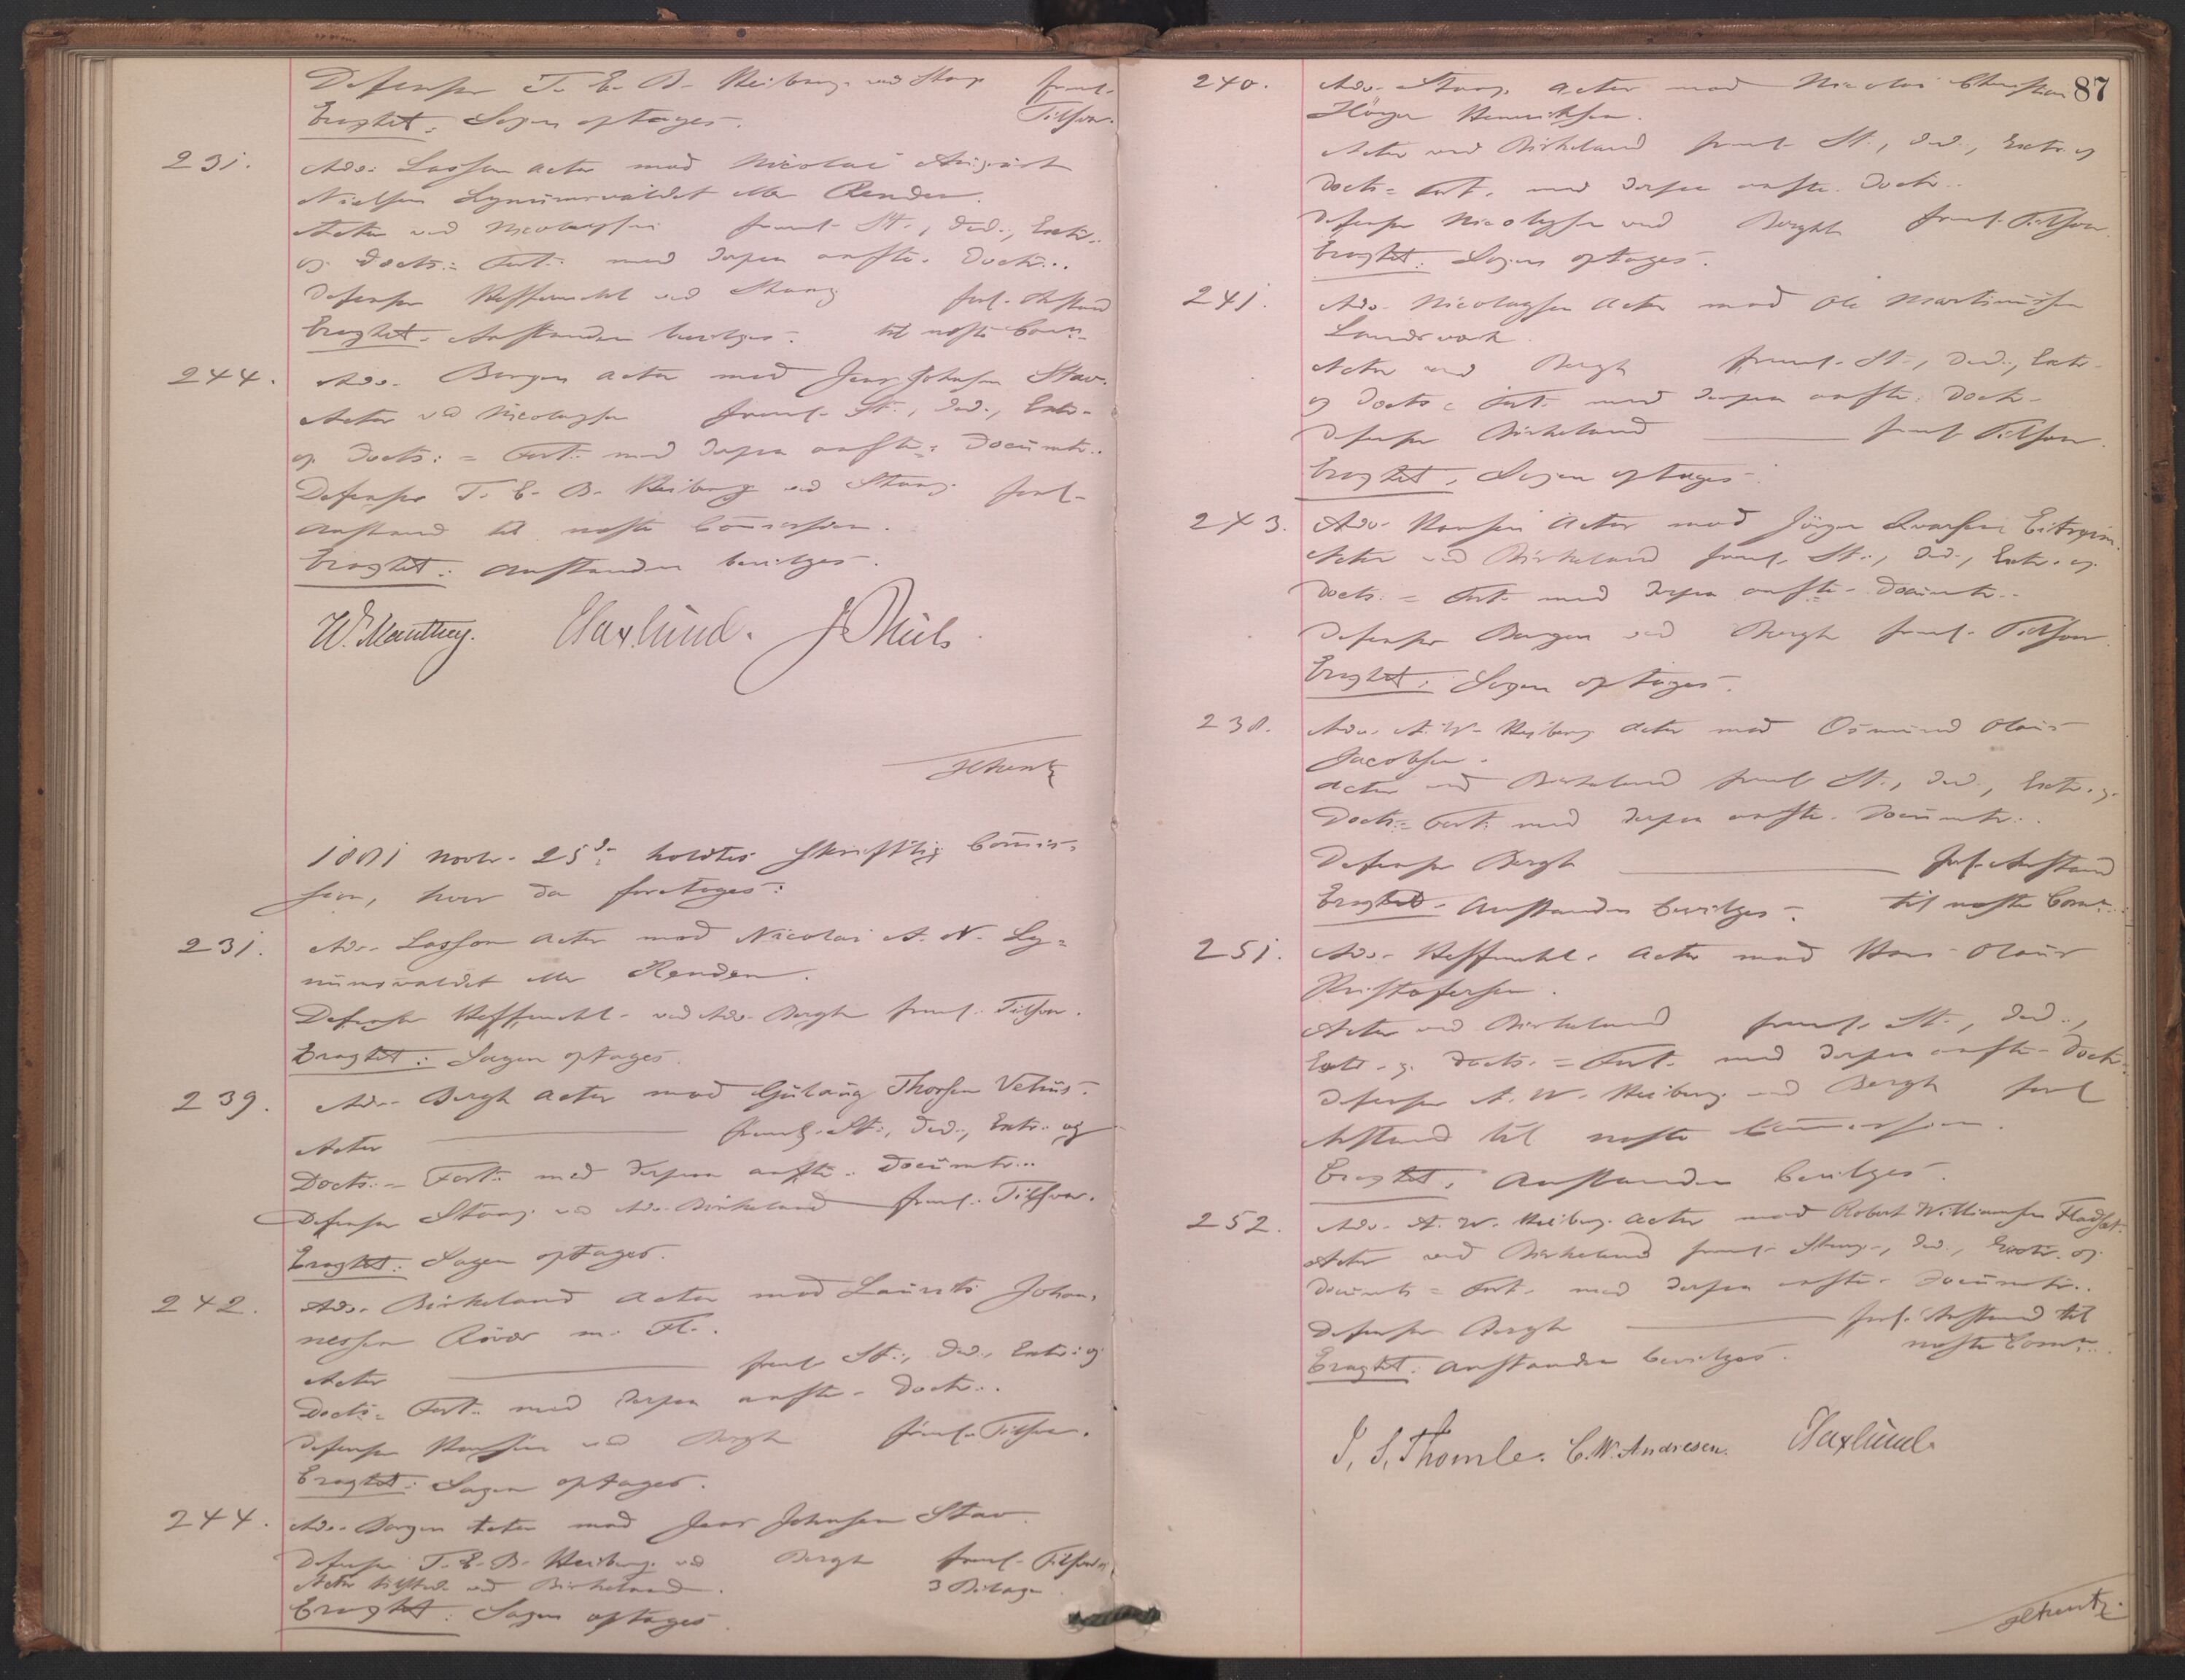 Defensor T. E. B. Heiberg ved Stang freml.
Eragtet: Sagen optages. Tilsvar.
231. Adv. Lasson Actor mod Nicolai August
Nielsen Lynumsvaldet eller Renden.
Actor ved Nicolaysen freml. St., Ded., Extr.
og Docts: = Fort. med derpaa anførte Doctr..
Defensor Hesselberg ved Stang forl. Anstand
Eragtet. Anstanden bevilges. til næste Comn.
244. Adv. Bergen Actor mod Jens Johnsen Stav.
Actor ved Nicolaysen freml. St., Ded., Extr.
og Docts: = Fort. med derpaa anførte Documtr..
Defensor T. E. B. Heiberg ved Stang forl.
Anstand til næste Commission.
Eragtet: Anstanden bevilges.
W. Manthey. Haxlund. J Thiis
1881 Novbr. 25de holdtes skriftlig Commis-
sion, hvor da foretoges:
231. Adv. Lasson Actor mod Nicolai A. N. Ly-
numsvaldet eller Renden.
Defensor ved Adv. Bergh freml. Tilsvar.
Eragtet: Sagen optages.
239. Adv. Bergh Actor mod Gulaug Thorsen Vehus.
Actor freml. St., Ded., Extr. og
Docts. = Fort. med derpaa anførte Documtr..
Defensor Stang ved Adv. Birkeland freml. Tilsvar.
Eragtet: Sagen optages.
242. Adv. Birkeland Actor mod Laurits Johan-
nessen Røvær m. Fl..
Actor freml. St., Ded., Extr. og
Docts = Fort. med derpaa anførte Doctr..
Defensor Hansen ved Bergh freml. Tilsvar.
Eragtet: Sagen optages.
244. Adv. Bergen Actor mod Jens Johnsen Stav.
Defensor T. E. B. Heiberg ved Bergh freml. Tilsvar,
Actor tilstede ved Birkeland. 3 Bilage
Eragtet: Sagen optages.
87
240. Adv. Stang Actor mod Nicolai Christian
Henriksen.
Actor ved Birkeland freml. St., Ded., Extr. og
Docts = Fort. med derpaa anførte Doctr..
Defensor Nicolaysen ved Bergh freml. Tilsvar.
Eragtet: Sagen optages.
241. Adv. Nicolaysen Actor mod Ole Martinussen
Landsvark.
Actor ved Bergh freml. St., Ded., Extr.
og Docts = Fort. med derpaa anførte Doctr.
Defensor Birkeland freml Tilsvar.
Eragtet. Sagen optages.
243. Adv. Hansen Actor mod Jørgen Eitreim.
Actor ved Birkeland freml. St., Ded., Extr. og
Docts. = Fort. med derpaa anførte Documtr..
Defensor Bergen ved Bergh freml. Tilsvar.
Eragtet: Sagen optages.
238. Adv. A. W. Heiberg Actor mod Osmund Olaus
Jacobsen.
Actor ved Birkeland freml St., Ded., Extr. og
Docts = Fort. med derpaa anførte Documtr..
Defensor Bergh forl. Anstand
Eragtet. Anstanden bevilges. til næste Comn.
251. Adv. Actor mod Hans Olaus
Kristofersen.
Actor ved Birkeland freml. St., Ded.,
Extr. og Docts. = Fort. med derpaa anførte Doctr.
Defensor A. W. Heiberg ved Bergh forl
Anstand til næste Commission.
Eragtet. Anstanden bevilges.
252. Adv. A. W. Heiberg Actor mod Robert Williamsen Fladset.
Actor ved Birkeland freml. Stevng., Ded., Extr. og
Documts = Fort. med derpaa anførte Documtr..
Defensor Bergh forl. Anstand til
Eragtet: Anstanden bevilges. næste Comn..
J. S. Thomle. C. W. Andresen. Haxlund.